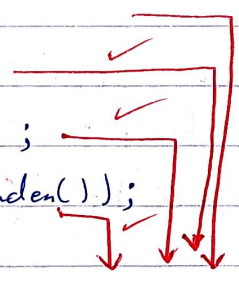 ;
nden());